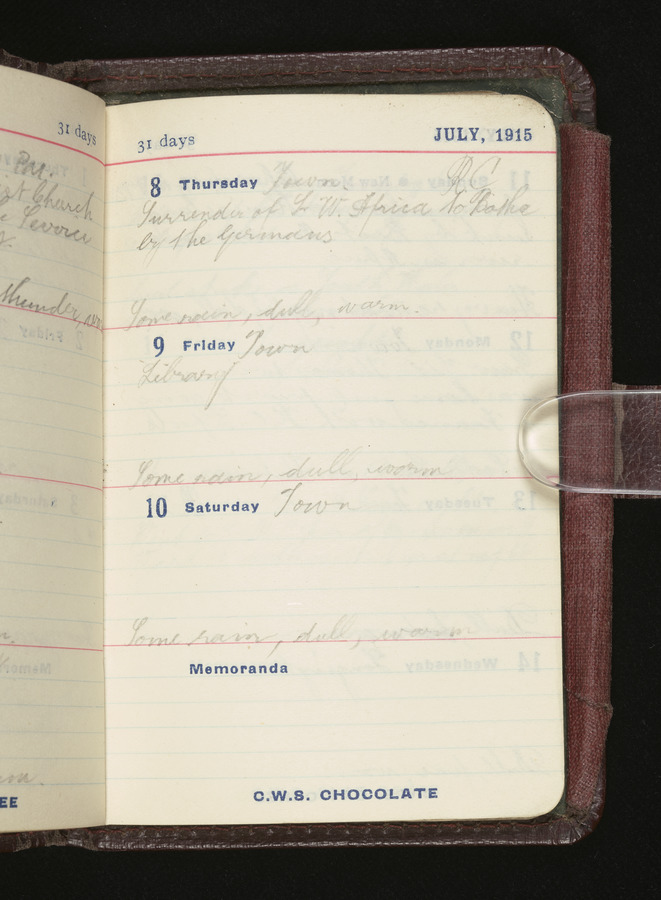 31 days
PM.
Church
thunder,
EE
31 days JULY, 1915
8 Thursday Town P.C
Surrender of S. W. Africa to Botha
by the Germans
Some rain, dull, warm.
9 Friday Town
Library
Some rain, dull, warm
10 Saturday Town
Some rain, dull, warm
Memoranda
C.W.S. CHOCOLATE